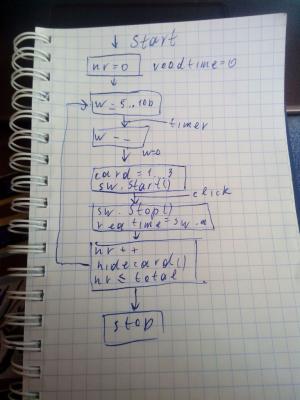 Start
nr=0 readtime=0
w = 5..100
timer
w - -
w=0
card = 1..3
sw.start()
click
sw.stop()
nr++
hidecard()
nr ≤ total
stop